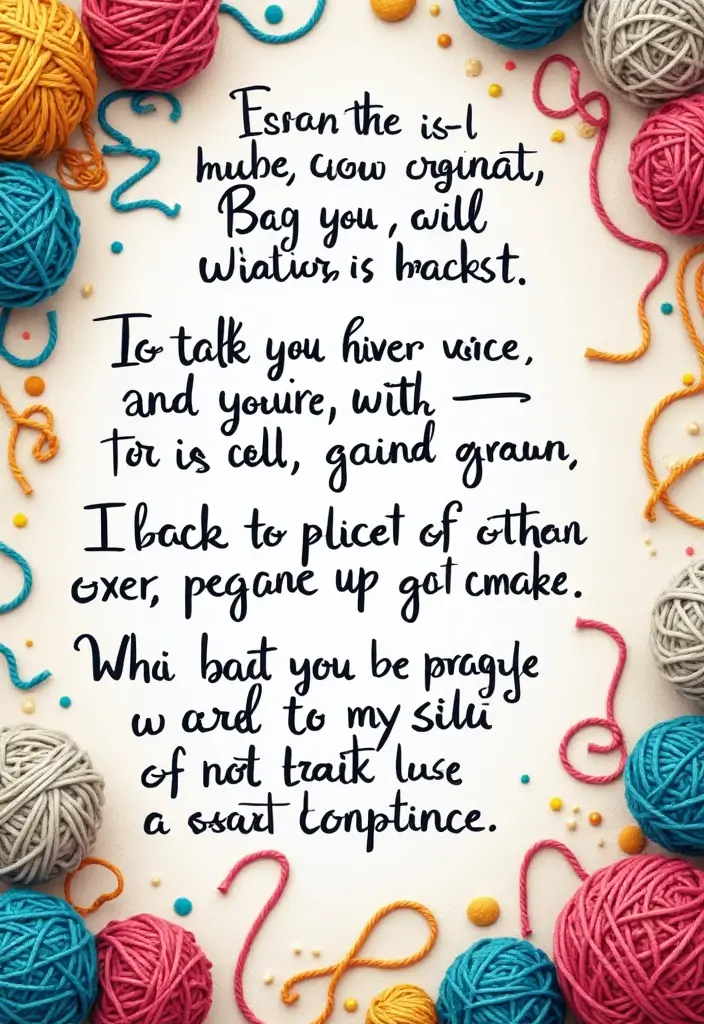 Esran the is-l
mube, cuow orginat,
Bag you, will
Wiatiurs, is hackst.
To talk you hiver vice,
and youire, with —
tor is cell, gaind graun,
I back to plicet of othan
oxer, pegane up got cmake.
Whai bact you be pragyle
w ard to my silui
of not traik luse
a osart tonptince.